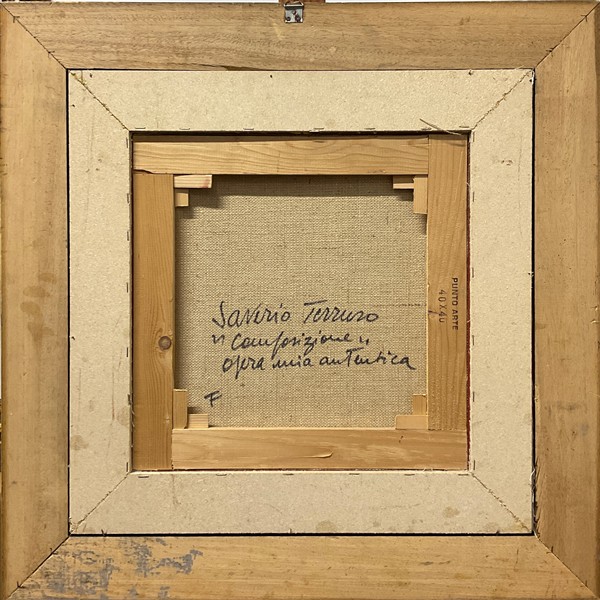 Saverio Terruso
"Composizione"
opera mia autentica
F
PUNTO ARTE
40X40